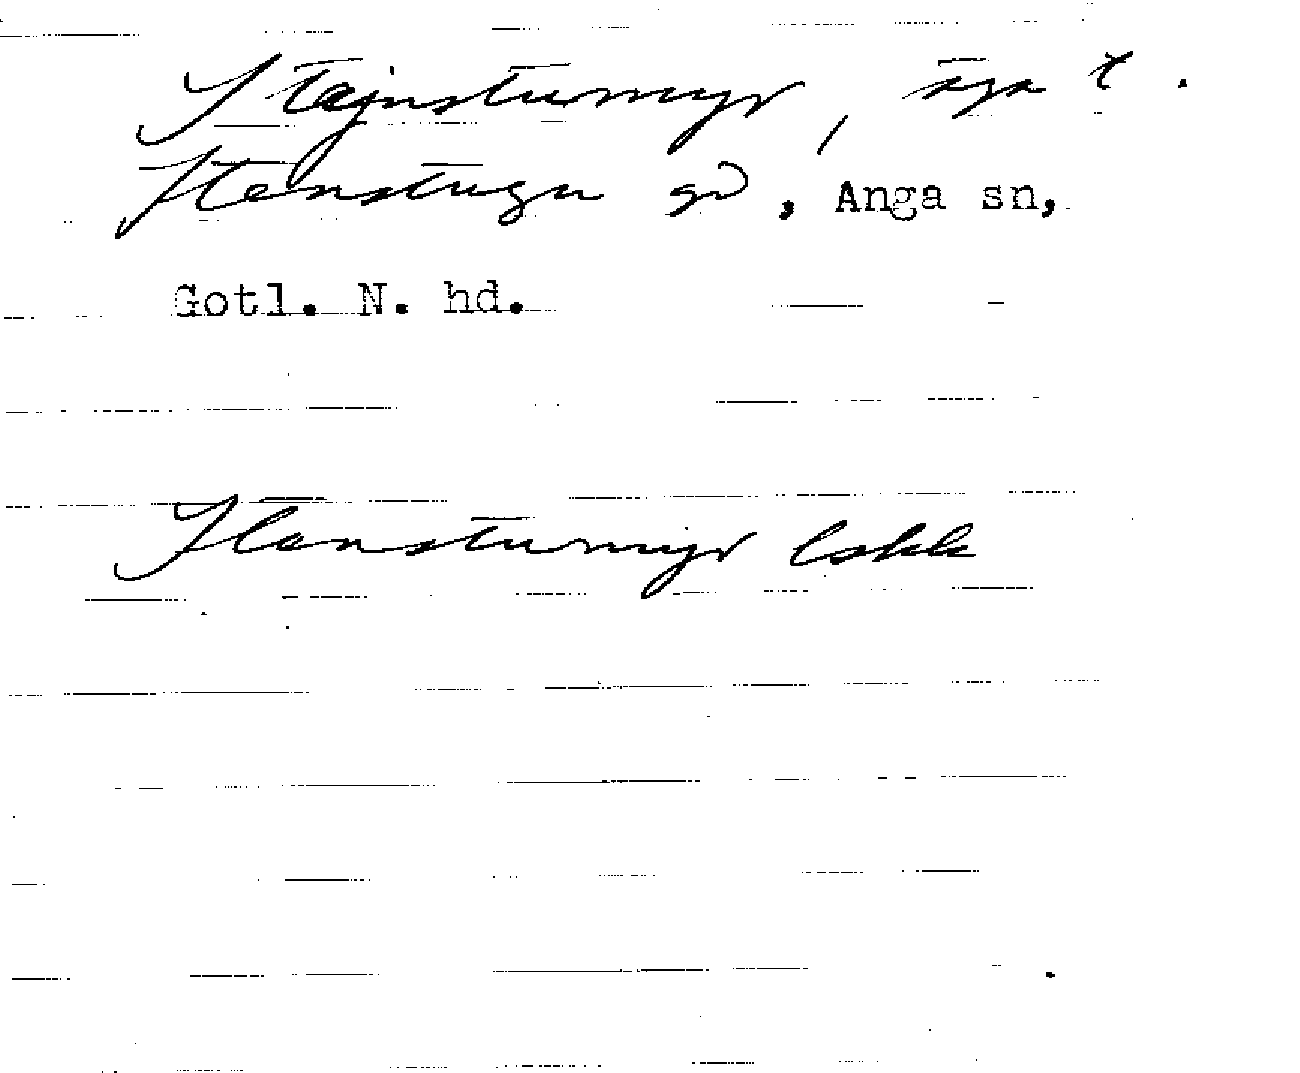 Stajnstumyr, äga t.
Stenstugu gd, Anga sn,
Gotl. N. hd.
Stenstumyr lskk